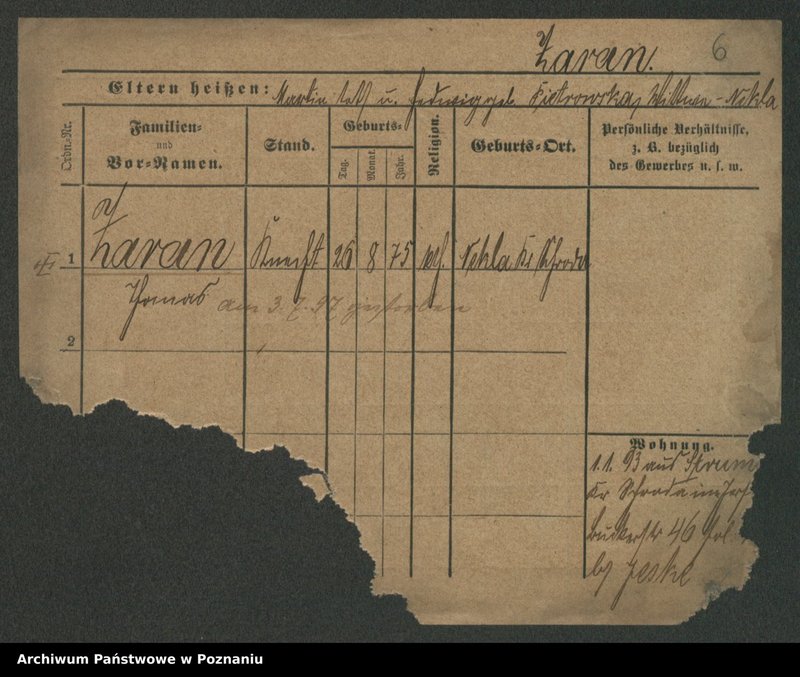 Zaran.
6
Eltern heißen: Martin todt u. Hedwig geb. Piotrowska, Wittwe - Nekla
Ordn.-Nr.
Familien-
und
Vor-Namen.
Stand.
Geburts-
Tag.
Monat.
Jahr.
Religion.
Geburts-Ort.
Persönliche Verhältnisse,
z. B. bezüglich
des Gewerbes u. s. w.
1 Zaran Knecht 26 8 75 kth. Nekla Kr Schroda
Thomas am 3. 7. 97 gestorben
2
Wohnung.
1.1. 93 aus
Kr Schroda
46
by Jeske
Archiwum Państwowe w Poznaniu